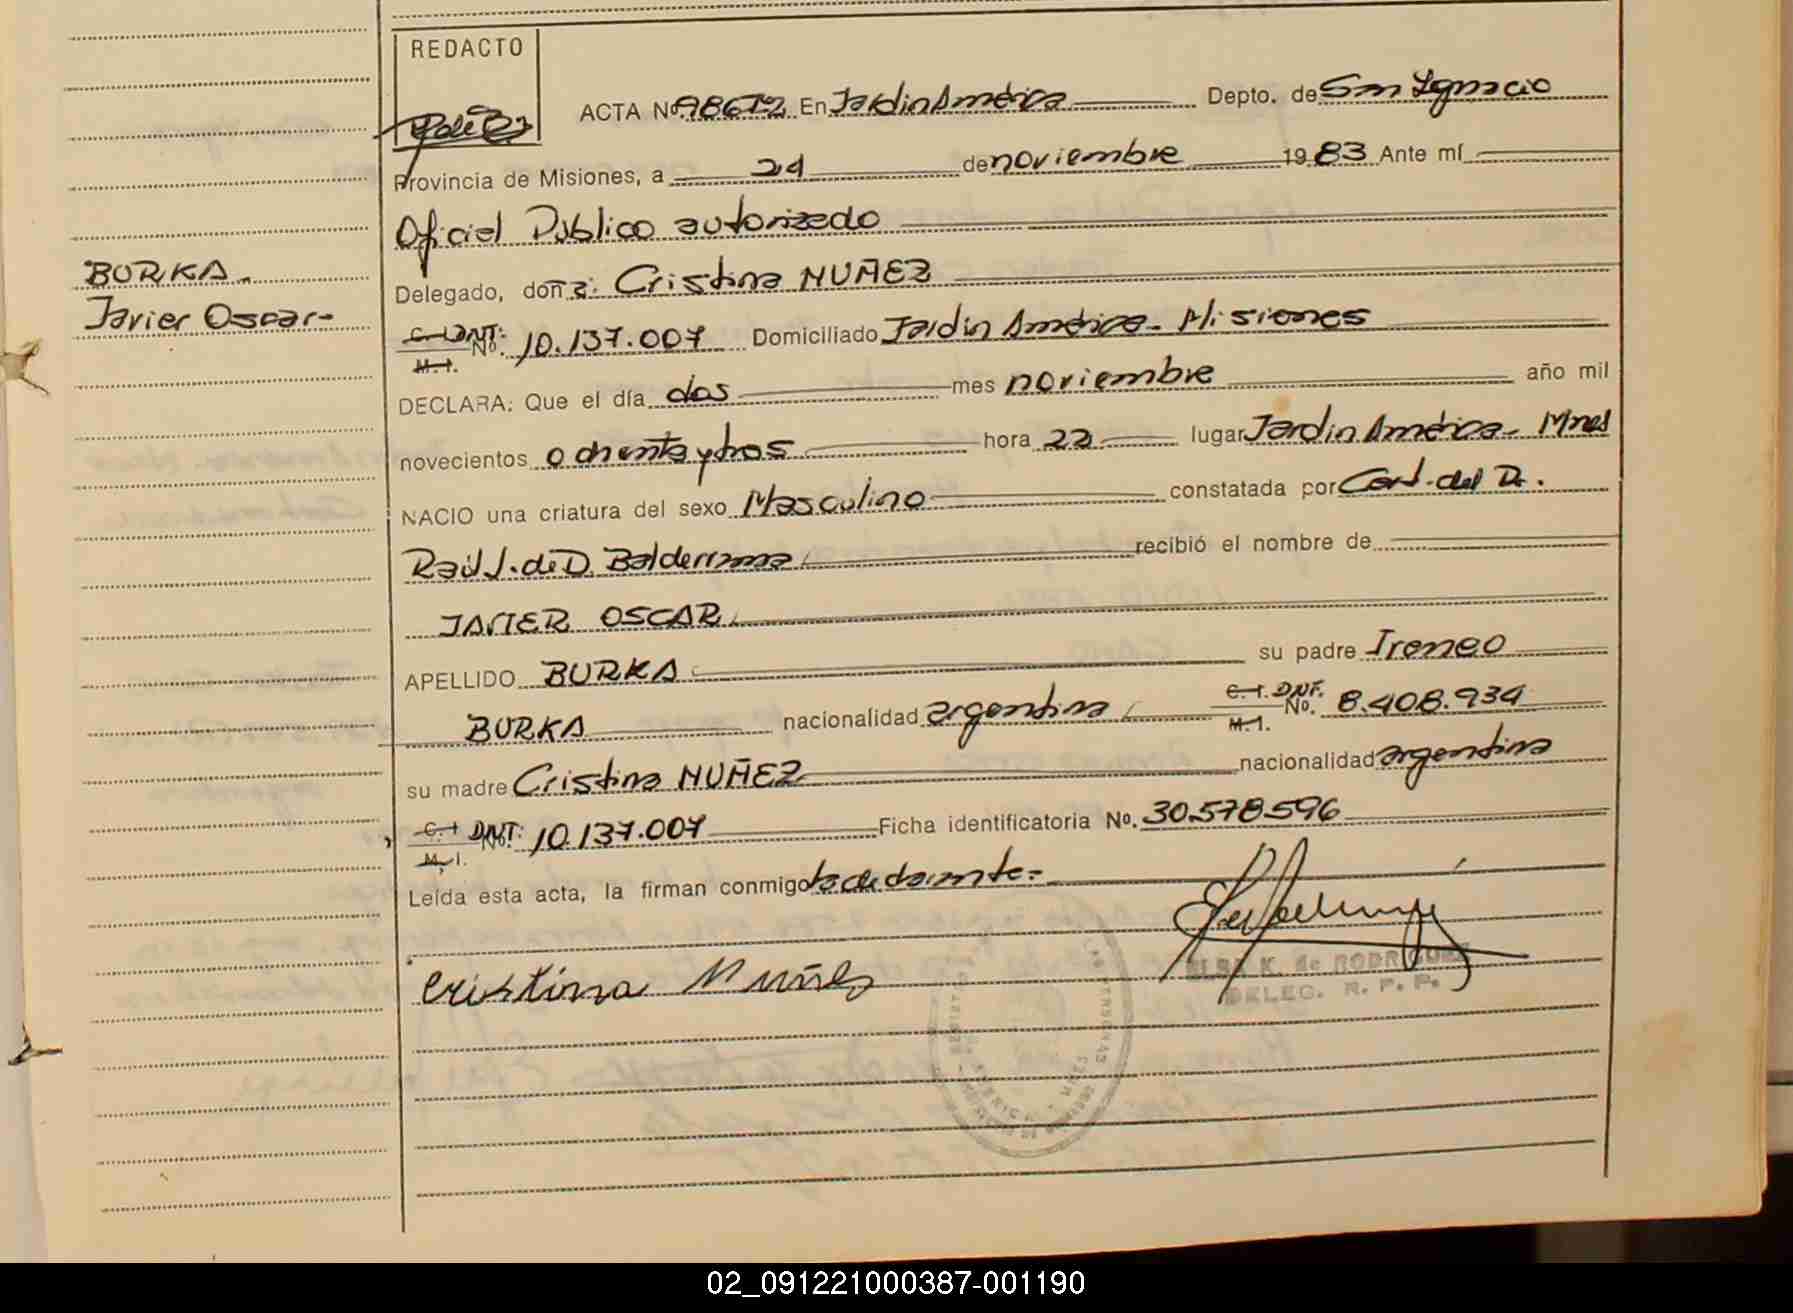 REDACTO
ACTA No. 986T2 En Jardin América Depto. de San Ignacio
Provincia de Misiones, a 24 de noviembre 1983 Ante mí
Oficial Público autorizado
BURKA
Javier Oscar-
Delegado, doña: Cristina NUÑEZ
C. I. DNI: M. I. No. 10.137.007 Domiciliado Jardin América - Misiones
DECLARA: Que el día dos mes noviembre año mil
novecientos ochenta y tres hora 22 lugar Jardin América - Mnes
NACIO una criatura del sexo Masculino constatada por Cert. del Dr.
Raúl J. de D. Balderrama recibió el nombre de
JAVIER OSCAR
APELLIDO BURKA su padre Ireneo
BURKA nacionalidad argentina C. I. DNI. M. I. No. 8.408.934
su madre Cristina NUÑEZ nacionalidad argentina
C. I. DNI: M. I. No. 10.137.007 Ficha identificatoria No. 30.578.596
Leída esta acta, la firman conmigo la declarante.-
Cristina Nuñez
ELSA K. de RODRIGUEZ
DELEG. R. P. P.
02_091221000387-001190